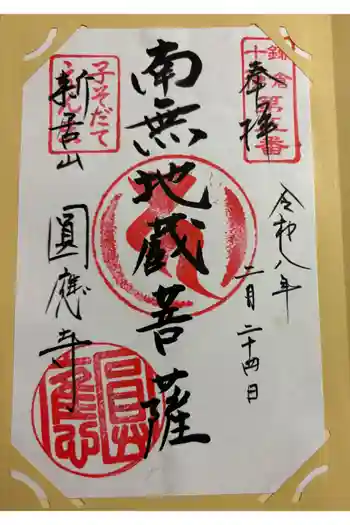 奉拝
鎌倉
十三
第五番
令和八年
二月二十四日
南無地蔵菩薩
子そだて
えんま
新居山
圓應寺